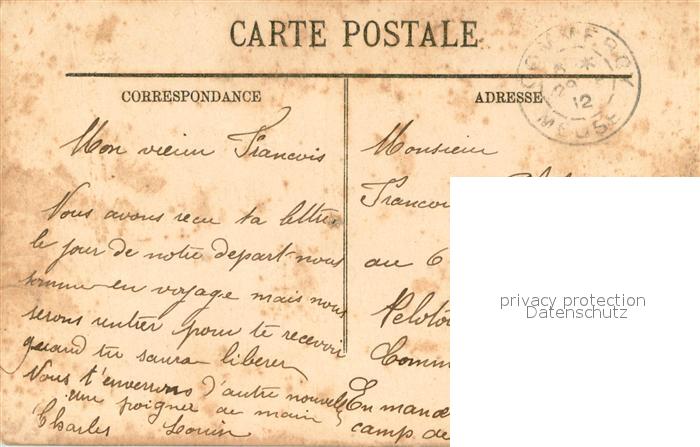 CARTE POSTALE
CORRESPONDANCE
ADRESSE
COMMERCY
29
12
MEUSE
Mon vieux Francois
Nous avons recu ta lettre
le jour de notre depart nous
somme en voyage mais nous
serons rentrer pour te recevoir
quand tu saura liberer
Nous t'enverrons d'autre nouvels
une poignee de main
Charles Louis
Monsieur
Francoi
au 6
Peloto
Comm
En manoe
camp de
privacy protection
Datenschutz